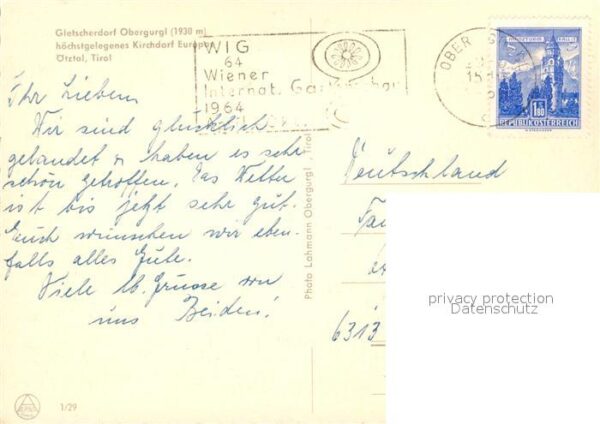 Gletscherdorf Obergurgl (1930 m)
höchstgelegenes Kirchdorf Europas
Ötztal, Tirol
WIG
64
Wiener
Internat. Gartenschau
1964
OBER
15
1.80
REPUBLIK ÖSTERREICH
Ihr Lieben
Wir sind glücklich
gelandet u haben es sehr
schön getroffen. Das Wetter
ist bis jetzt sehr gut.
Euch wünschen wir eben-
falls alles Gute.
Viele lb. Grüsse von
uns Beiden!
Deutschland
6313
Photo Lohmann Obergurgl, Tirol
privacy protection
Datenschutz
1/29